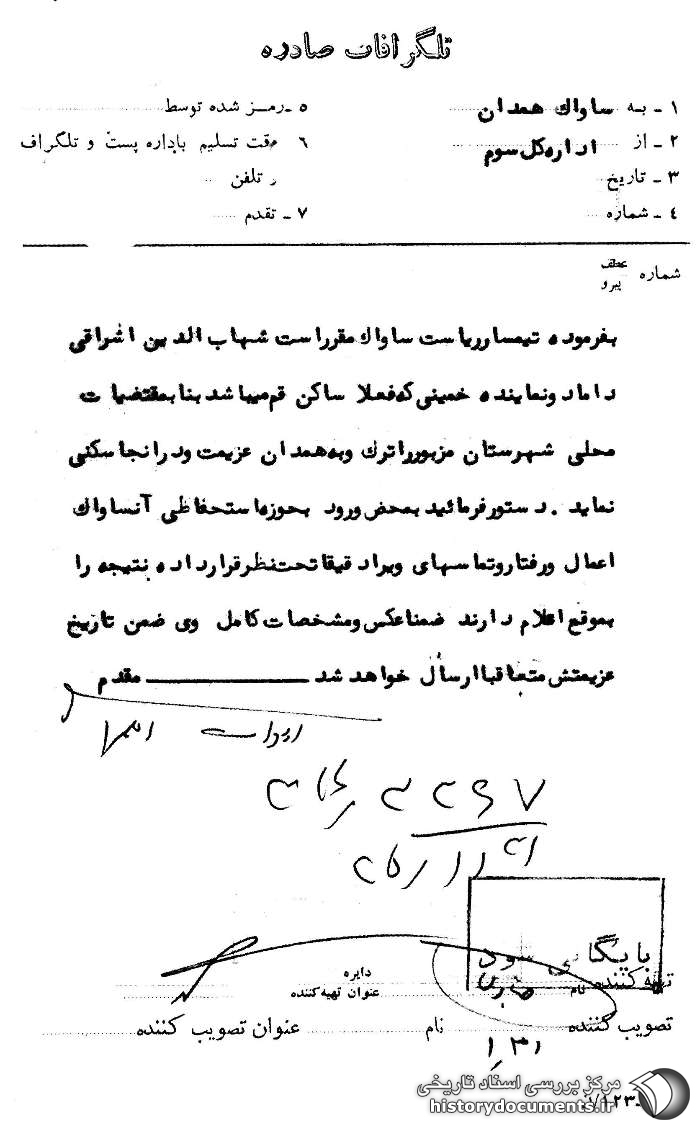 تلگرافات صادره
۱ - به ساواك همدان
۲ - از اداره کل سوم
۳ - تاریخ
٤ - شماره
٥ - رمز شده توسط
٦ وقت تسلیم باداره پست و تلگراف
ر تلفن
۷ - تقدم
شماره عطف پیرو
بفرموده تیمسار ریاست ساواك مقرر است شهاب الدین اشراقی
داماد و نماینده خمینی که فعلا ساکن قم میباشد بنا بمقتضیات
محلی شهرستان مزبور را ترك و به همدان عزیمت و در انجا سکنی
نماید . دستور فرمائید بمحض ورود بحوزه استحفاظی آنساواك
اعمال و رفتار و تماسهای ویرا دقیقا تحت نظر قرار داده نتیجه را
بموقع اعلام دارند ضمنا عکس و مشخصات کامل وی ضمن تاریخ
عزیمتش متعاقبا ارسال خواهد شد ــــــــــ مقدم
بایگانی شود
تهیه کننده نام
دایره
عنوان تهیه کننده
تصویب کننده نام عنوان تصویب کننده
مرکز بررسی اسناد تاریخی
historydocuments.ir